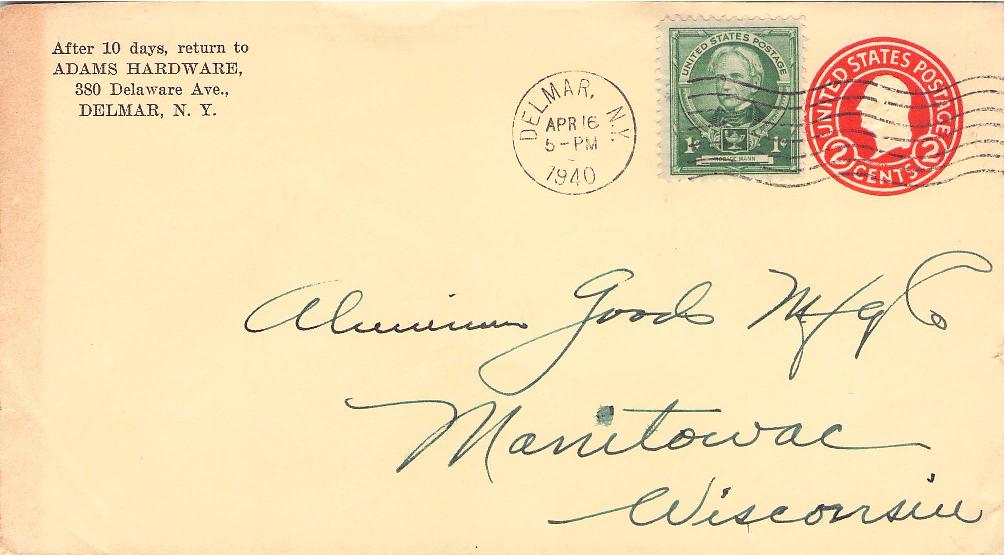 After 10 days, return to
ADAMS HARDWARE,
380 Delaware Ave.,
DELMAR, N. Y.
DELMAR, N.Y.
APR 16
5-PM
1940
UNITED STATES POSTAGE
1¢ 1¢
HORACE MANN
UNITED STATES POSTAGE
2 CENTS 2
Aluminum Goods Mfg Co
Manitowoc
Wisconsin